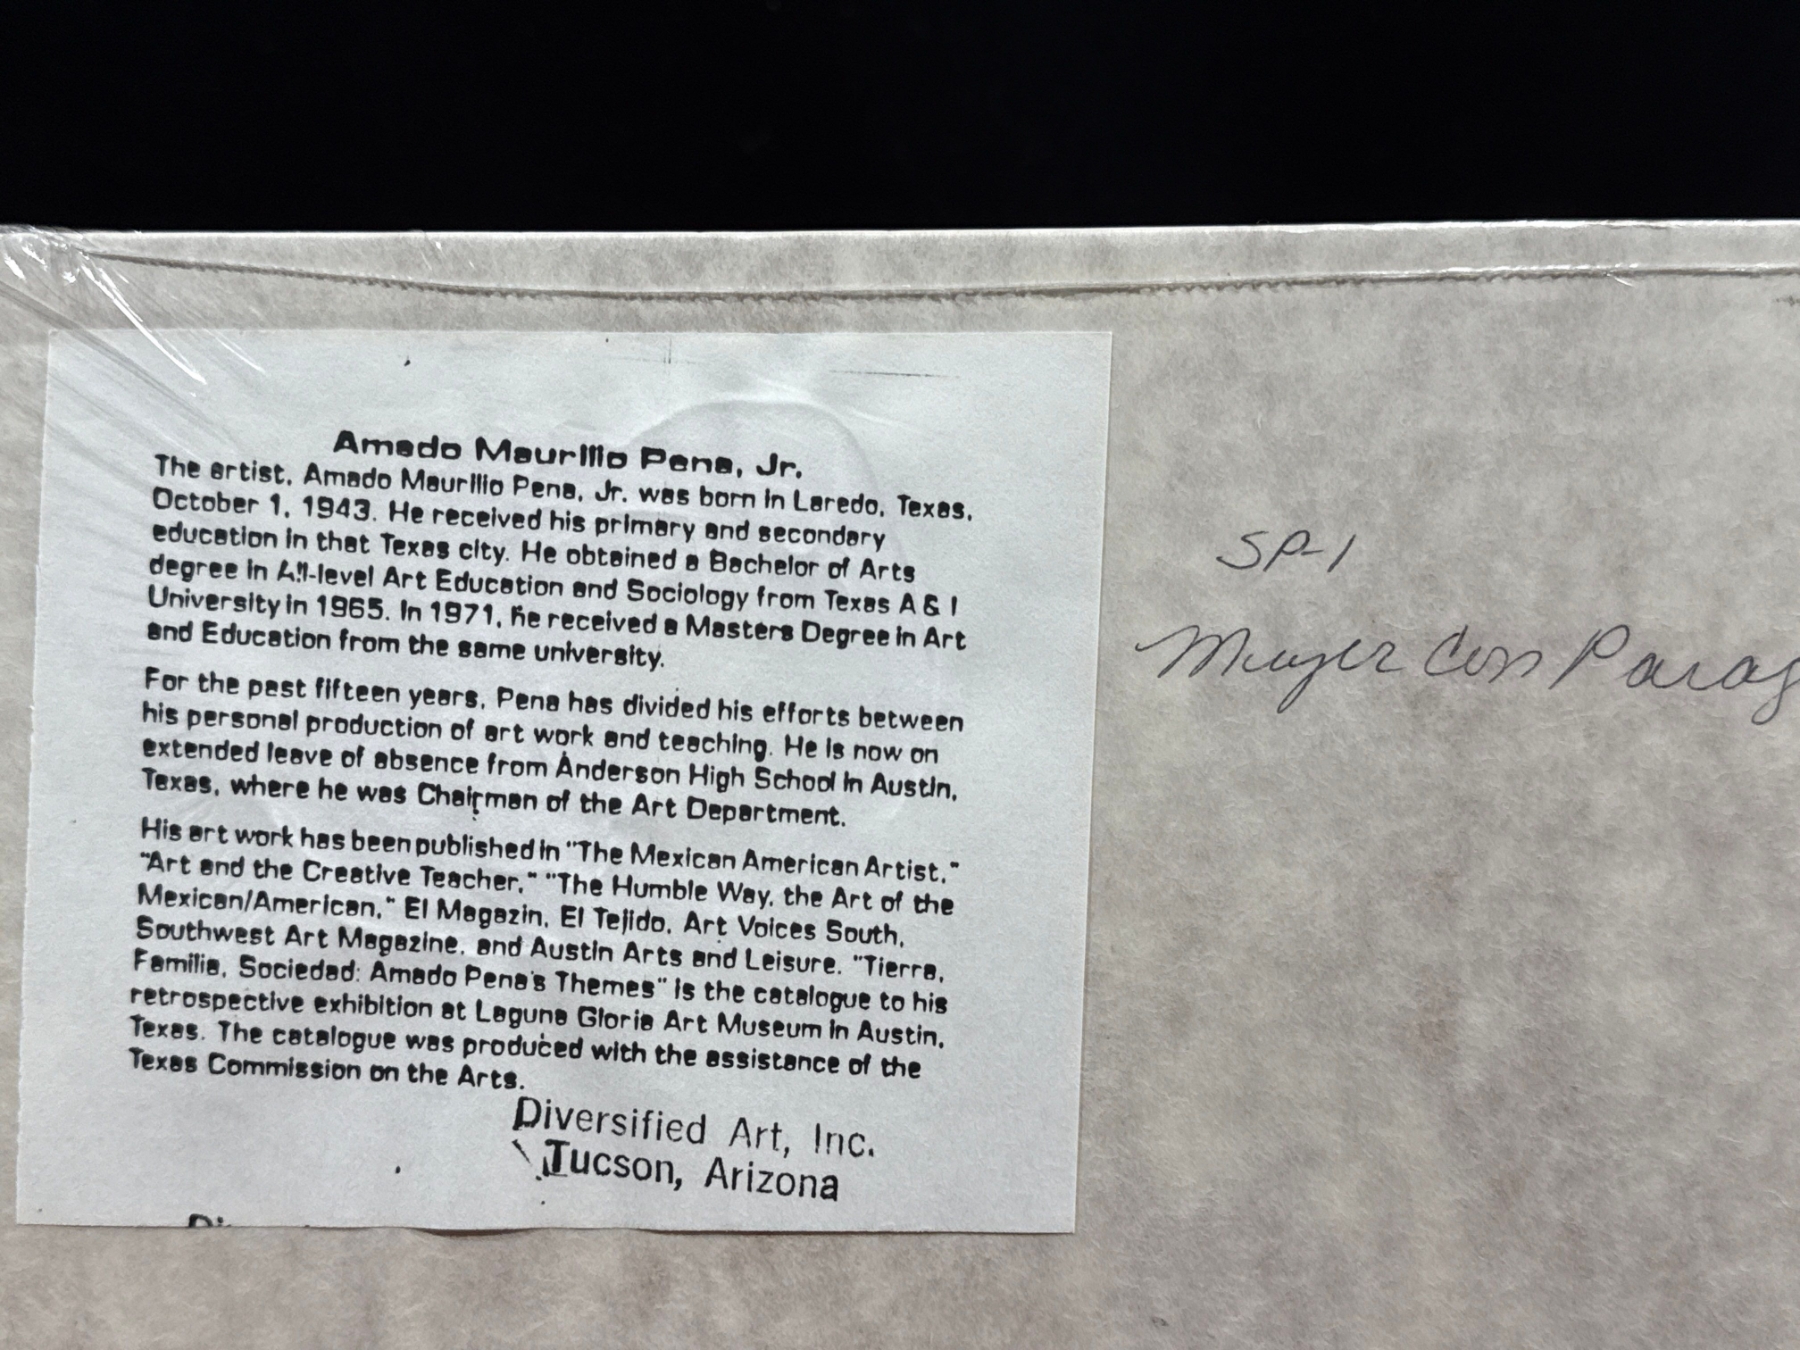 Amado Maurilio Pena, Jr.
The artist, Amado Maurilio Pena, Jr. was born in Laredo, Texas,
October 1, 1943. He received his primary and secondary
education in that Texas city. He obtained a Bachelor of Arts
degree in All-level Art Education and Sociology from Texas A & I
University in 1965. In 1971, he received a Masters Degree in Art
and Education from the same university.
For the past fifteen years, Pena has divided his efforts between
his personal production of art work and teaching. He is now on
extended leave of absence from Anderson High School in Austin,
Texas, where he was Chairman of the Art Department.
His art work has been published in "The Mexican American Artist,"
"Art and the Creative Teacher," "The Humble Way, the Art of the
Mexican/American," El Magazin, El Tejido, Art Voices South,
Southwest Art Magazine, and Austin Arts and Leisure. "Tierra,
Familia, Sociedad: Amado Pena's Themes" is the catalogue to his
retrospective exhibition at Laguna Gloria Art Museum in Austin,
Texas. The catalogue was produced with the assistance of the
Texas Commission on the Arts.
Diversified Art, Inc.
Tucson, Arizona
SP-1
Mujer Con